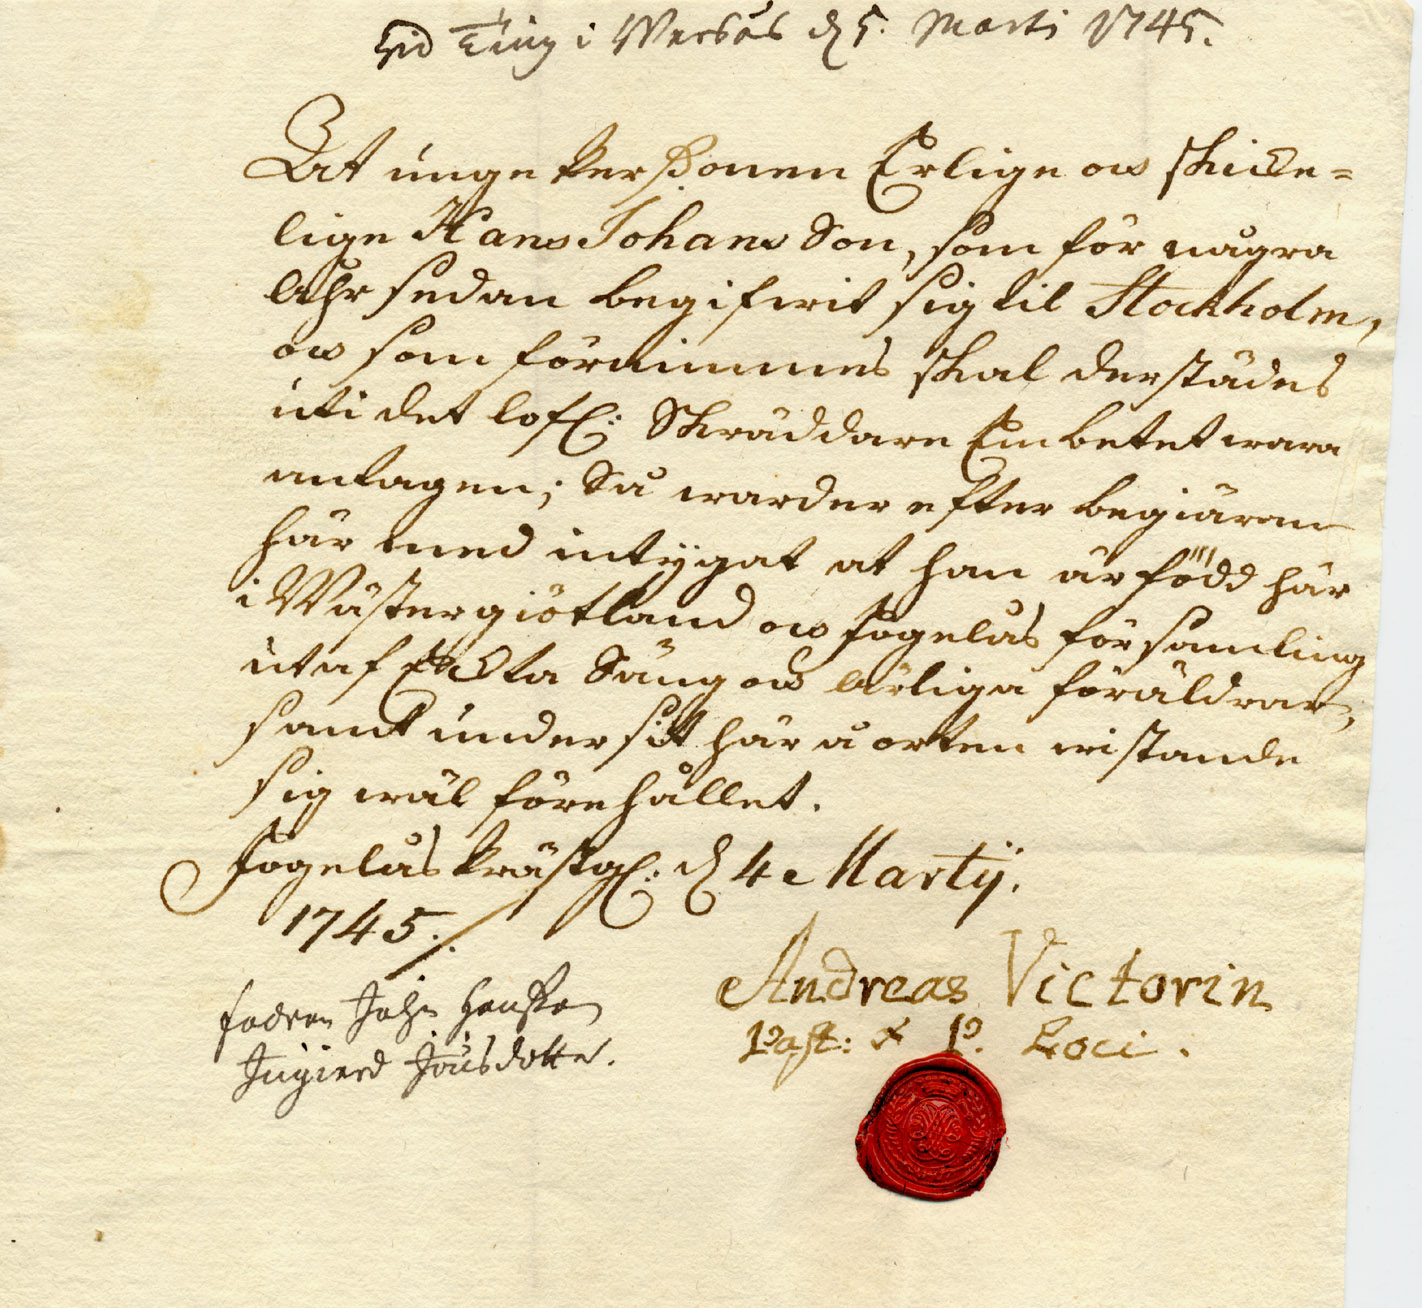 vid Ting i Wersås d 5. Marti 1745.
At unge Perßonen Erlige och skicke=
lige Hans Johans Son, som för några
åhr sedan begifwit sig til Stockholm,
och som förnimmes skal derstädes
uti det lofl: Skräddare Embetet wara
antagen; Så warder efter begiäran
här med intÿgat at han är född här
i Wästergiötland och Fogelås församling
utaf Ächta Säng och ärliga föräldrar,
samt under sit här å orten wistande
sig wäl förehållet.
Fogelås Prästg: d 4 Martij.
1745./.
Andreas Victorin
Past: & P. Loci.
fadren Jahn Hanßon
Ingierd Jönsdotter.